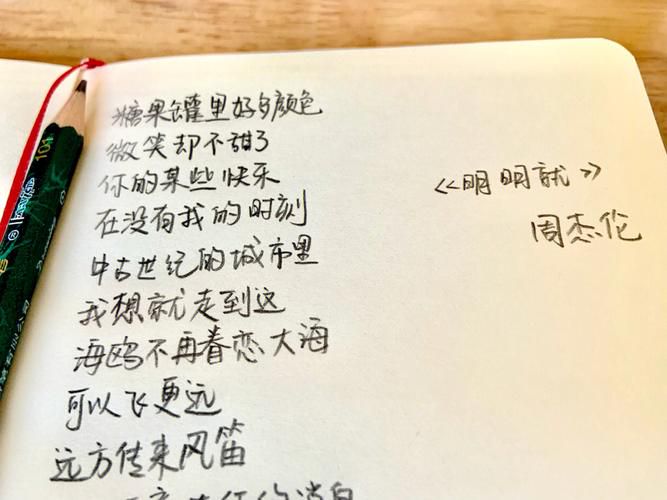 糖果罐里好多颜色
微笑却不甜了
你的某些快乐
在没有我的时刻
中古世纪的城市里
我想就走到这
海鸥不再眷恋大海
可以飞更远
远方传来风笛
《明明就》
周杰伦
101